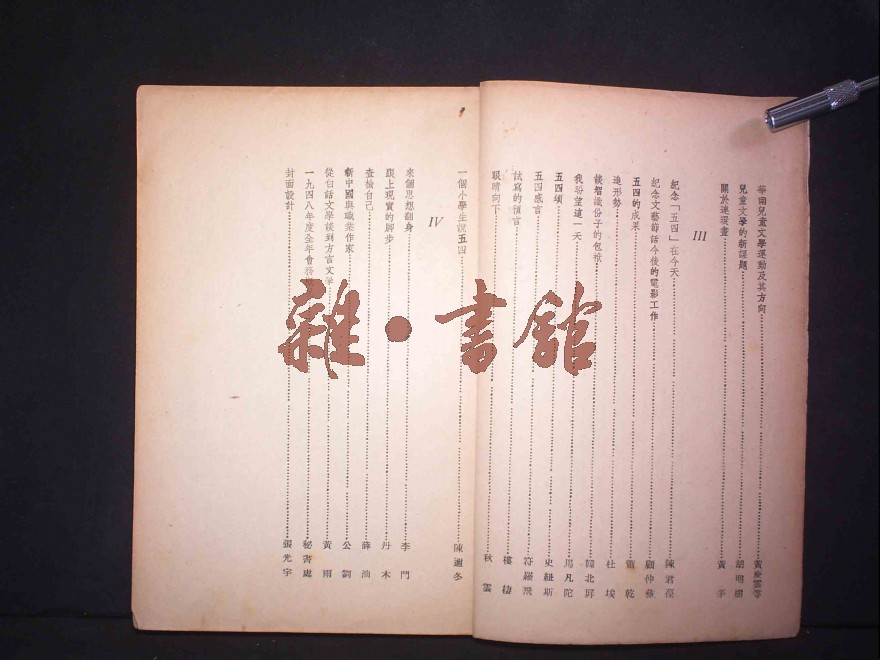 華南兒童文學運動及其方向……黃慶雲等
兒童文學的新課題……胡明樹
關於連環畫……黃茅
III
紀念「五四」在今天……陳君葆
紀念文藝節話今後的電影工作……顧仲彝
五四的成果……蕭乾
造形勢……杜埃
談智識份子的包袱……陳北屏
我盼望這一天……馬凡陀
五四頌……史紐斯
五四感言……符羅飛
試寫的預言……樓棲
眼睛向下……秋雲
一個小學生說五四……陳邇冬
IV
來個思想翻身……李門
跟上現實的脚步……丹木
查檢自己……薛汕
新中國與職業作家……公劉
從白話文學談到方言文學……黃雨
一九四八年度全年會務……秘書處
封面設計……張光宇
雜·書館